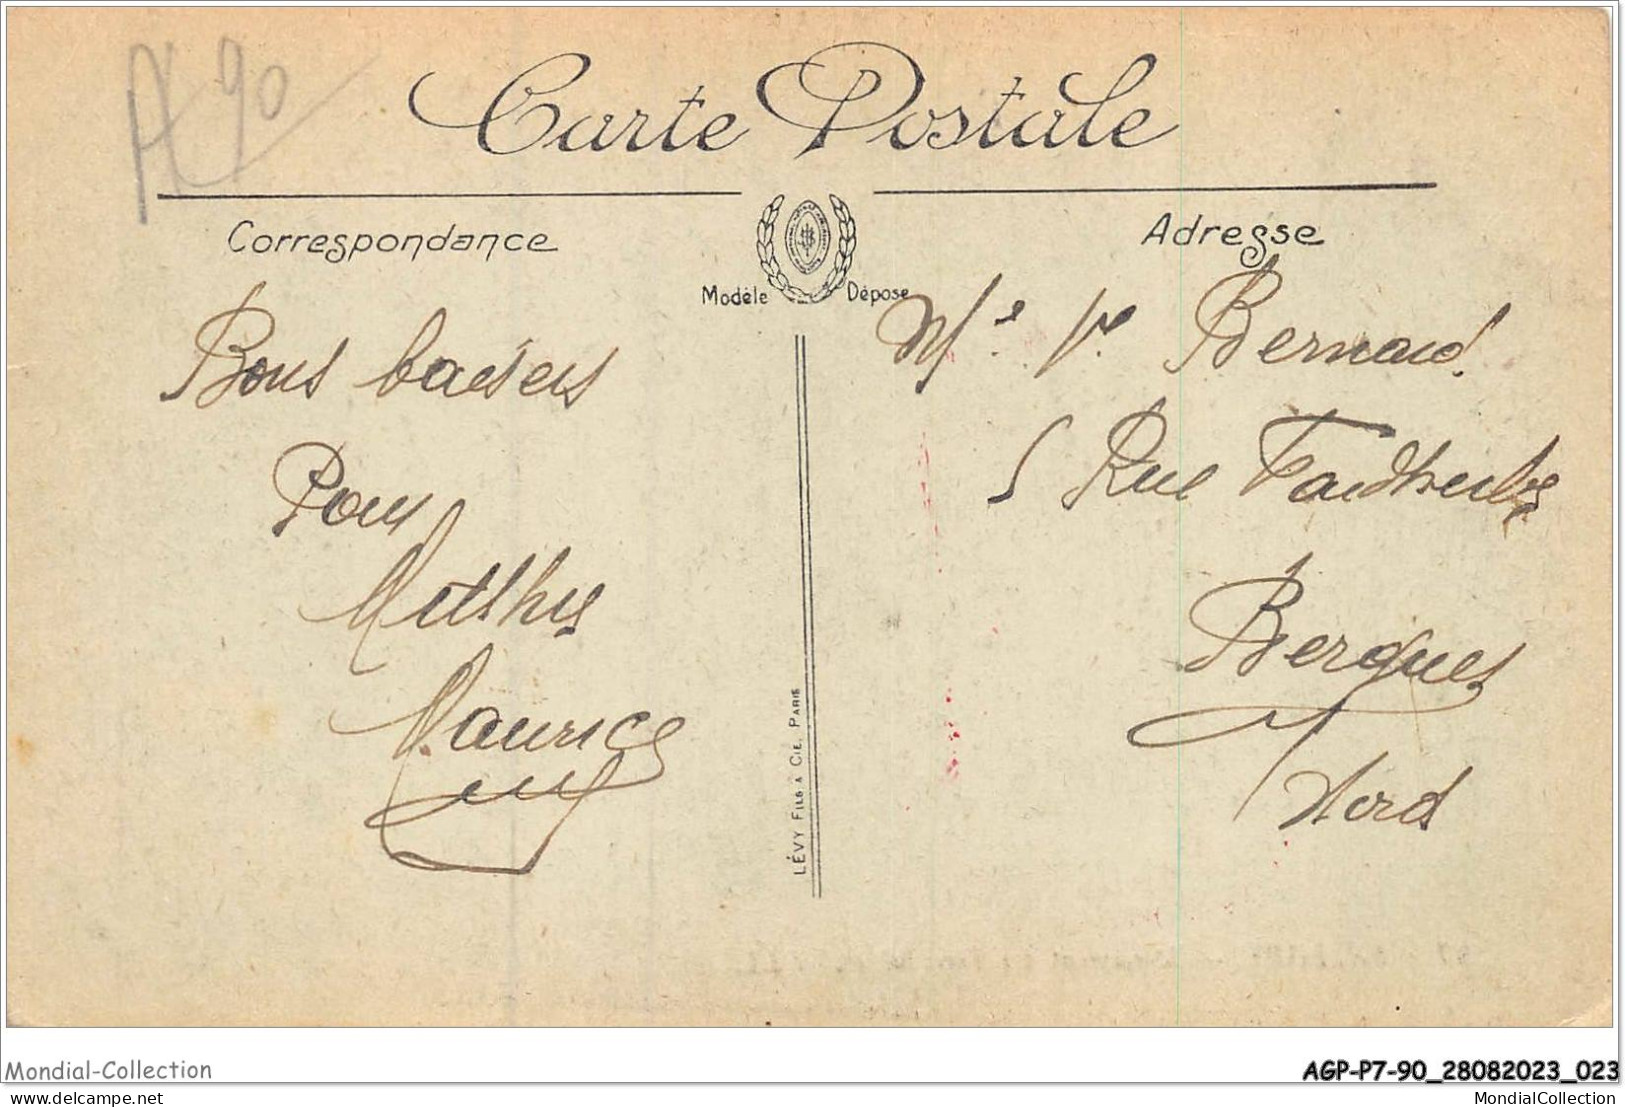 A 90
Carte Postale
Correspondance
Adresse
Modèle Déposé
Bons baisers
Pour
Maurice
LÉVY FILS & CIE, PARIS
Mme Vve Bernard
5 Rue Faidherbe
Bergues
Nord
Mondial-Collection
AGP-P7-90_28082023_023
delcampe.net
MondialCollection